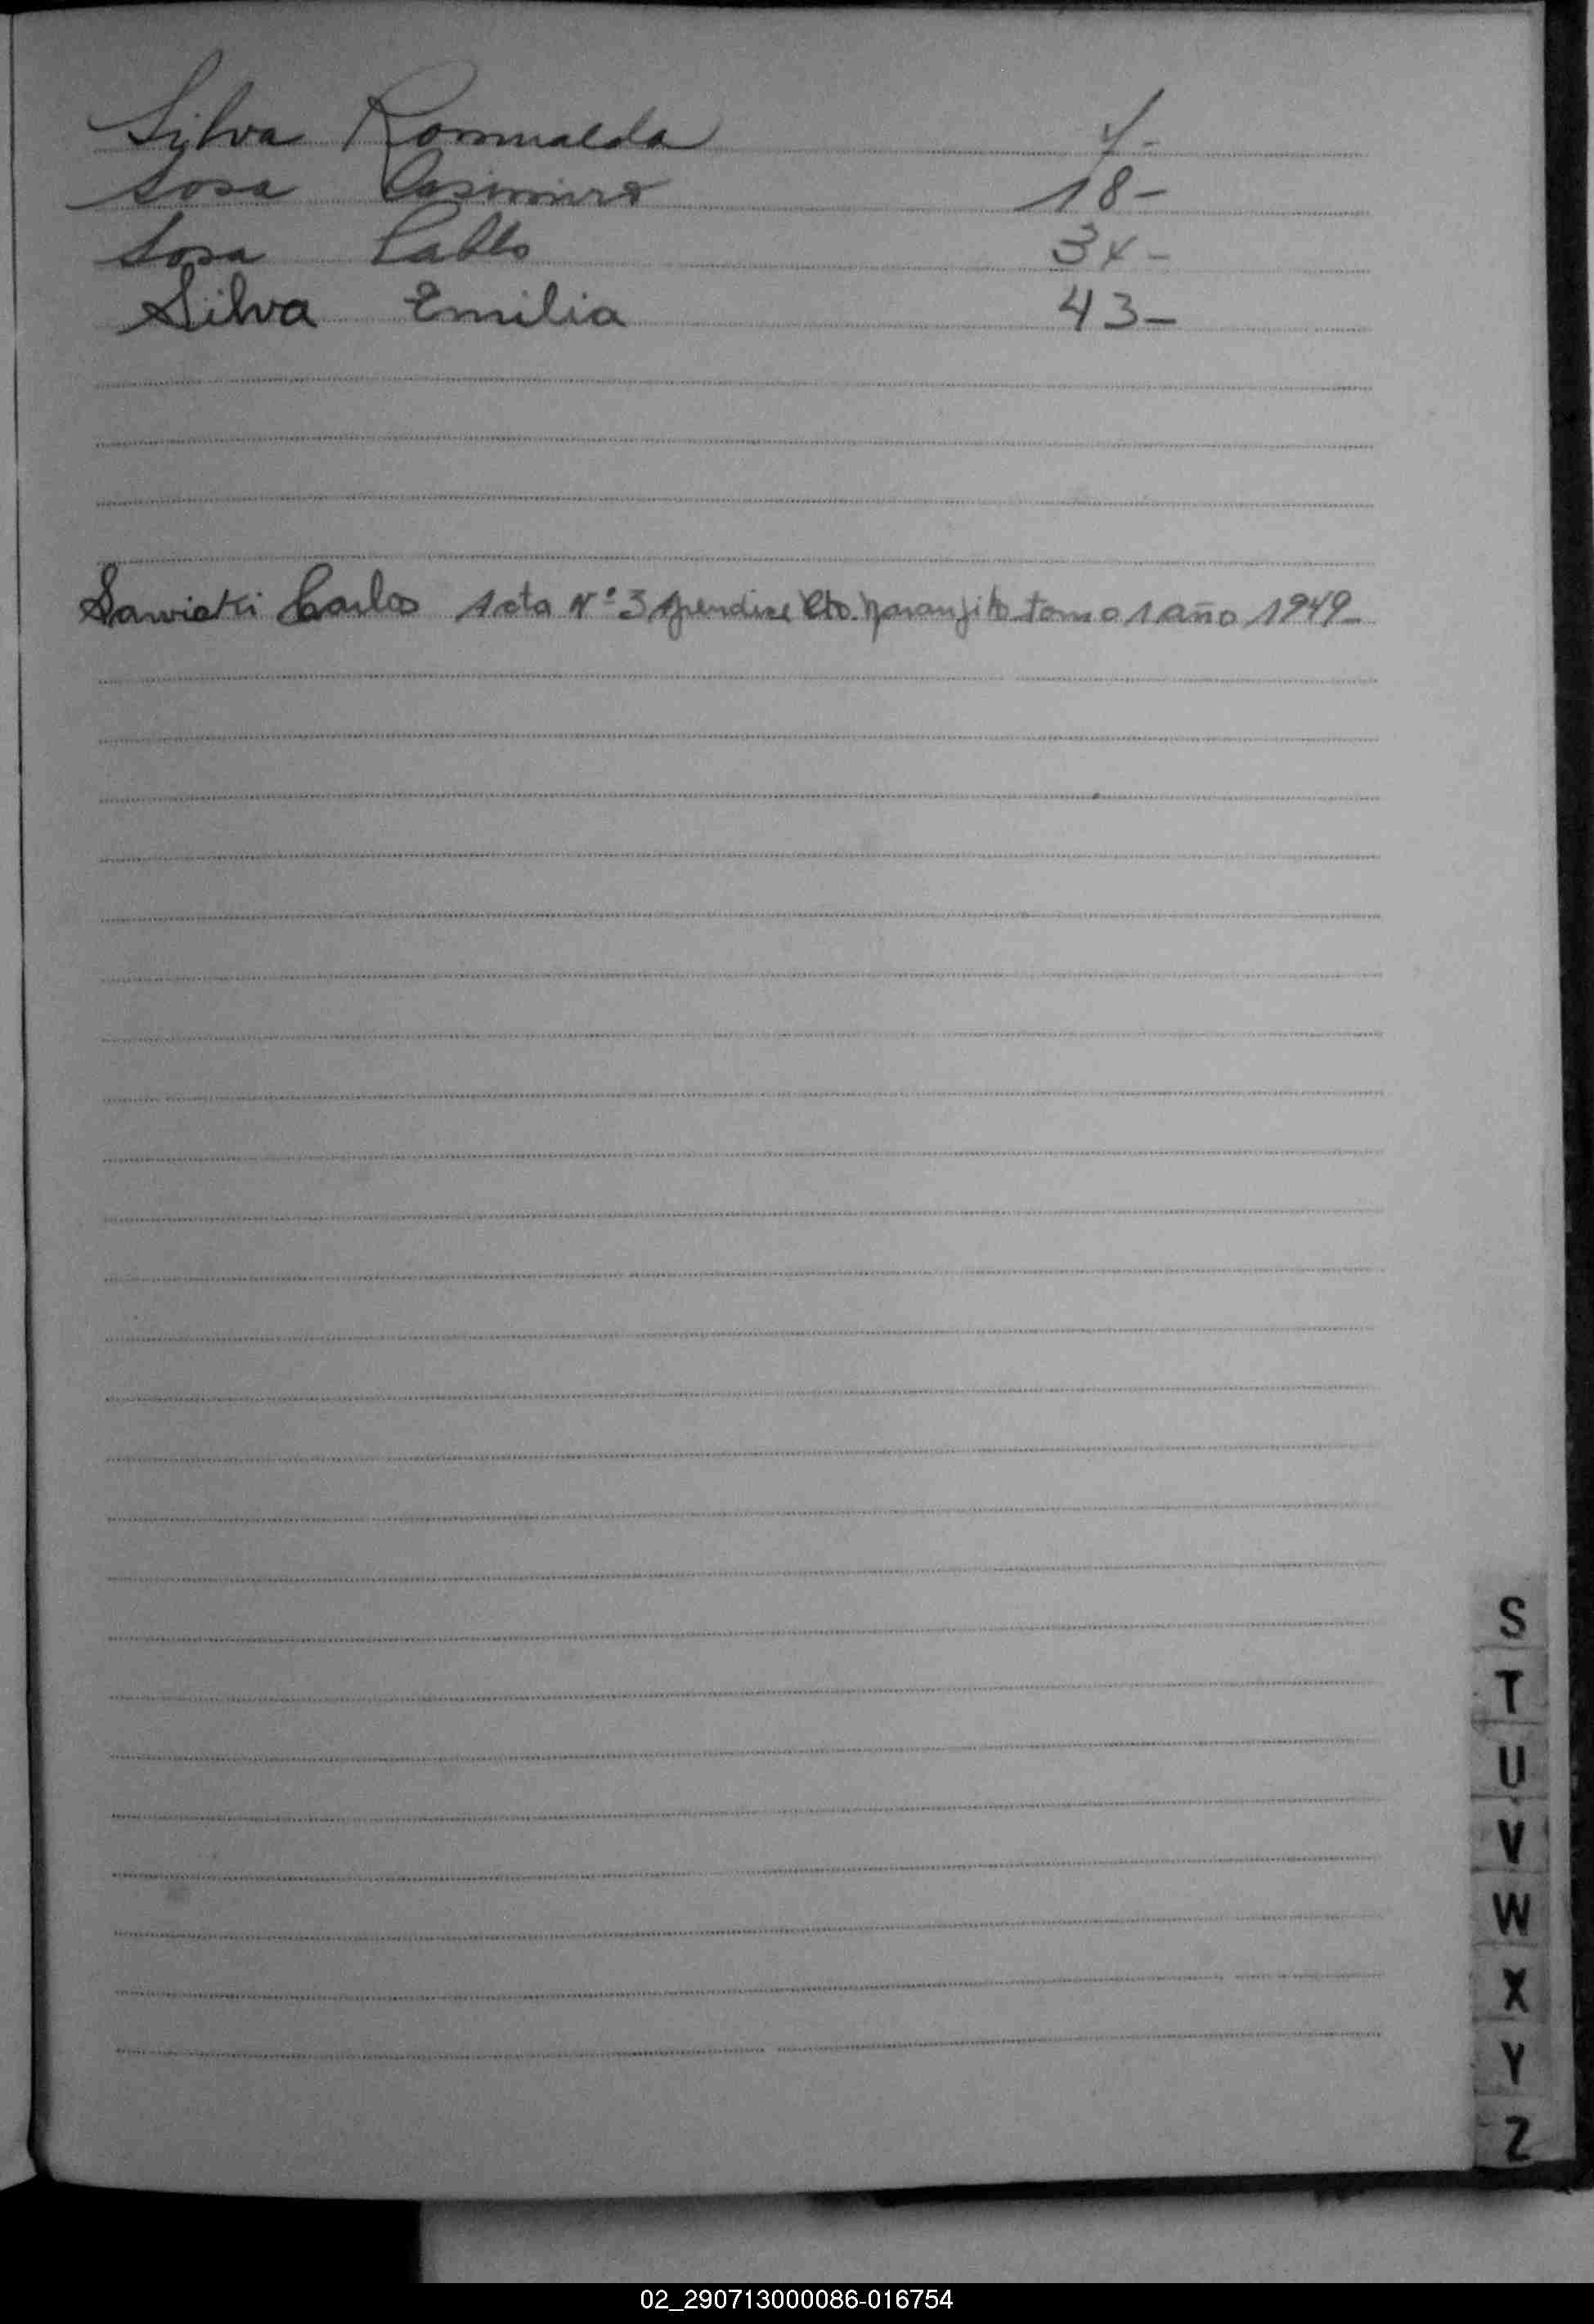 Silva Romualda 4-
Sosa Casimiro 18-
Sosa Pablo 34-
Silva Emilia 43-
Sawicki Carlos Acta Nº 3 Apendice Cto. Naranjito tomo 1 año 1949-
S
T
U
V
W
X
Y
Z
02_290713000086-016754